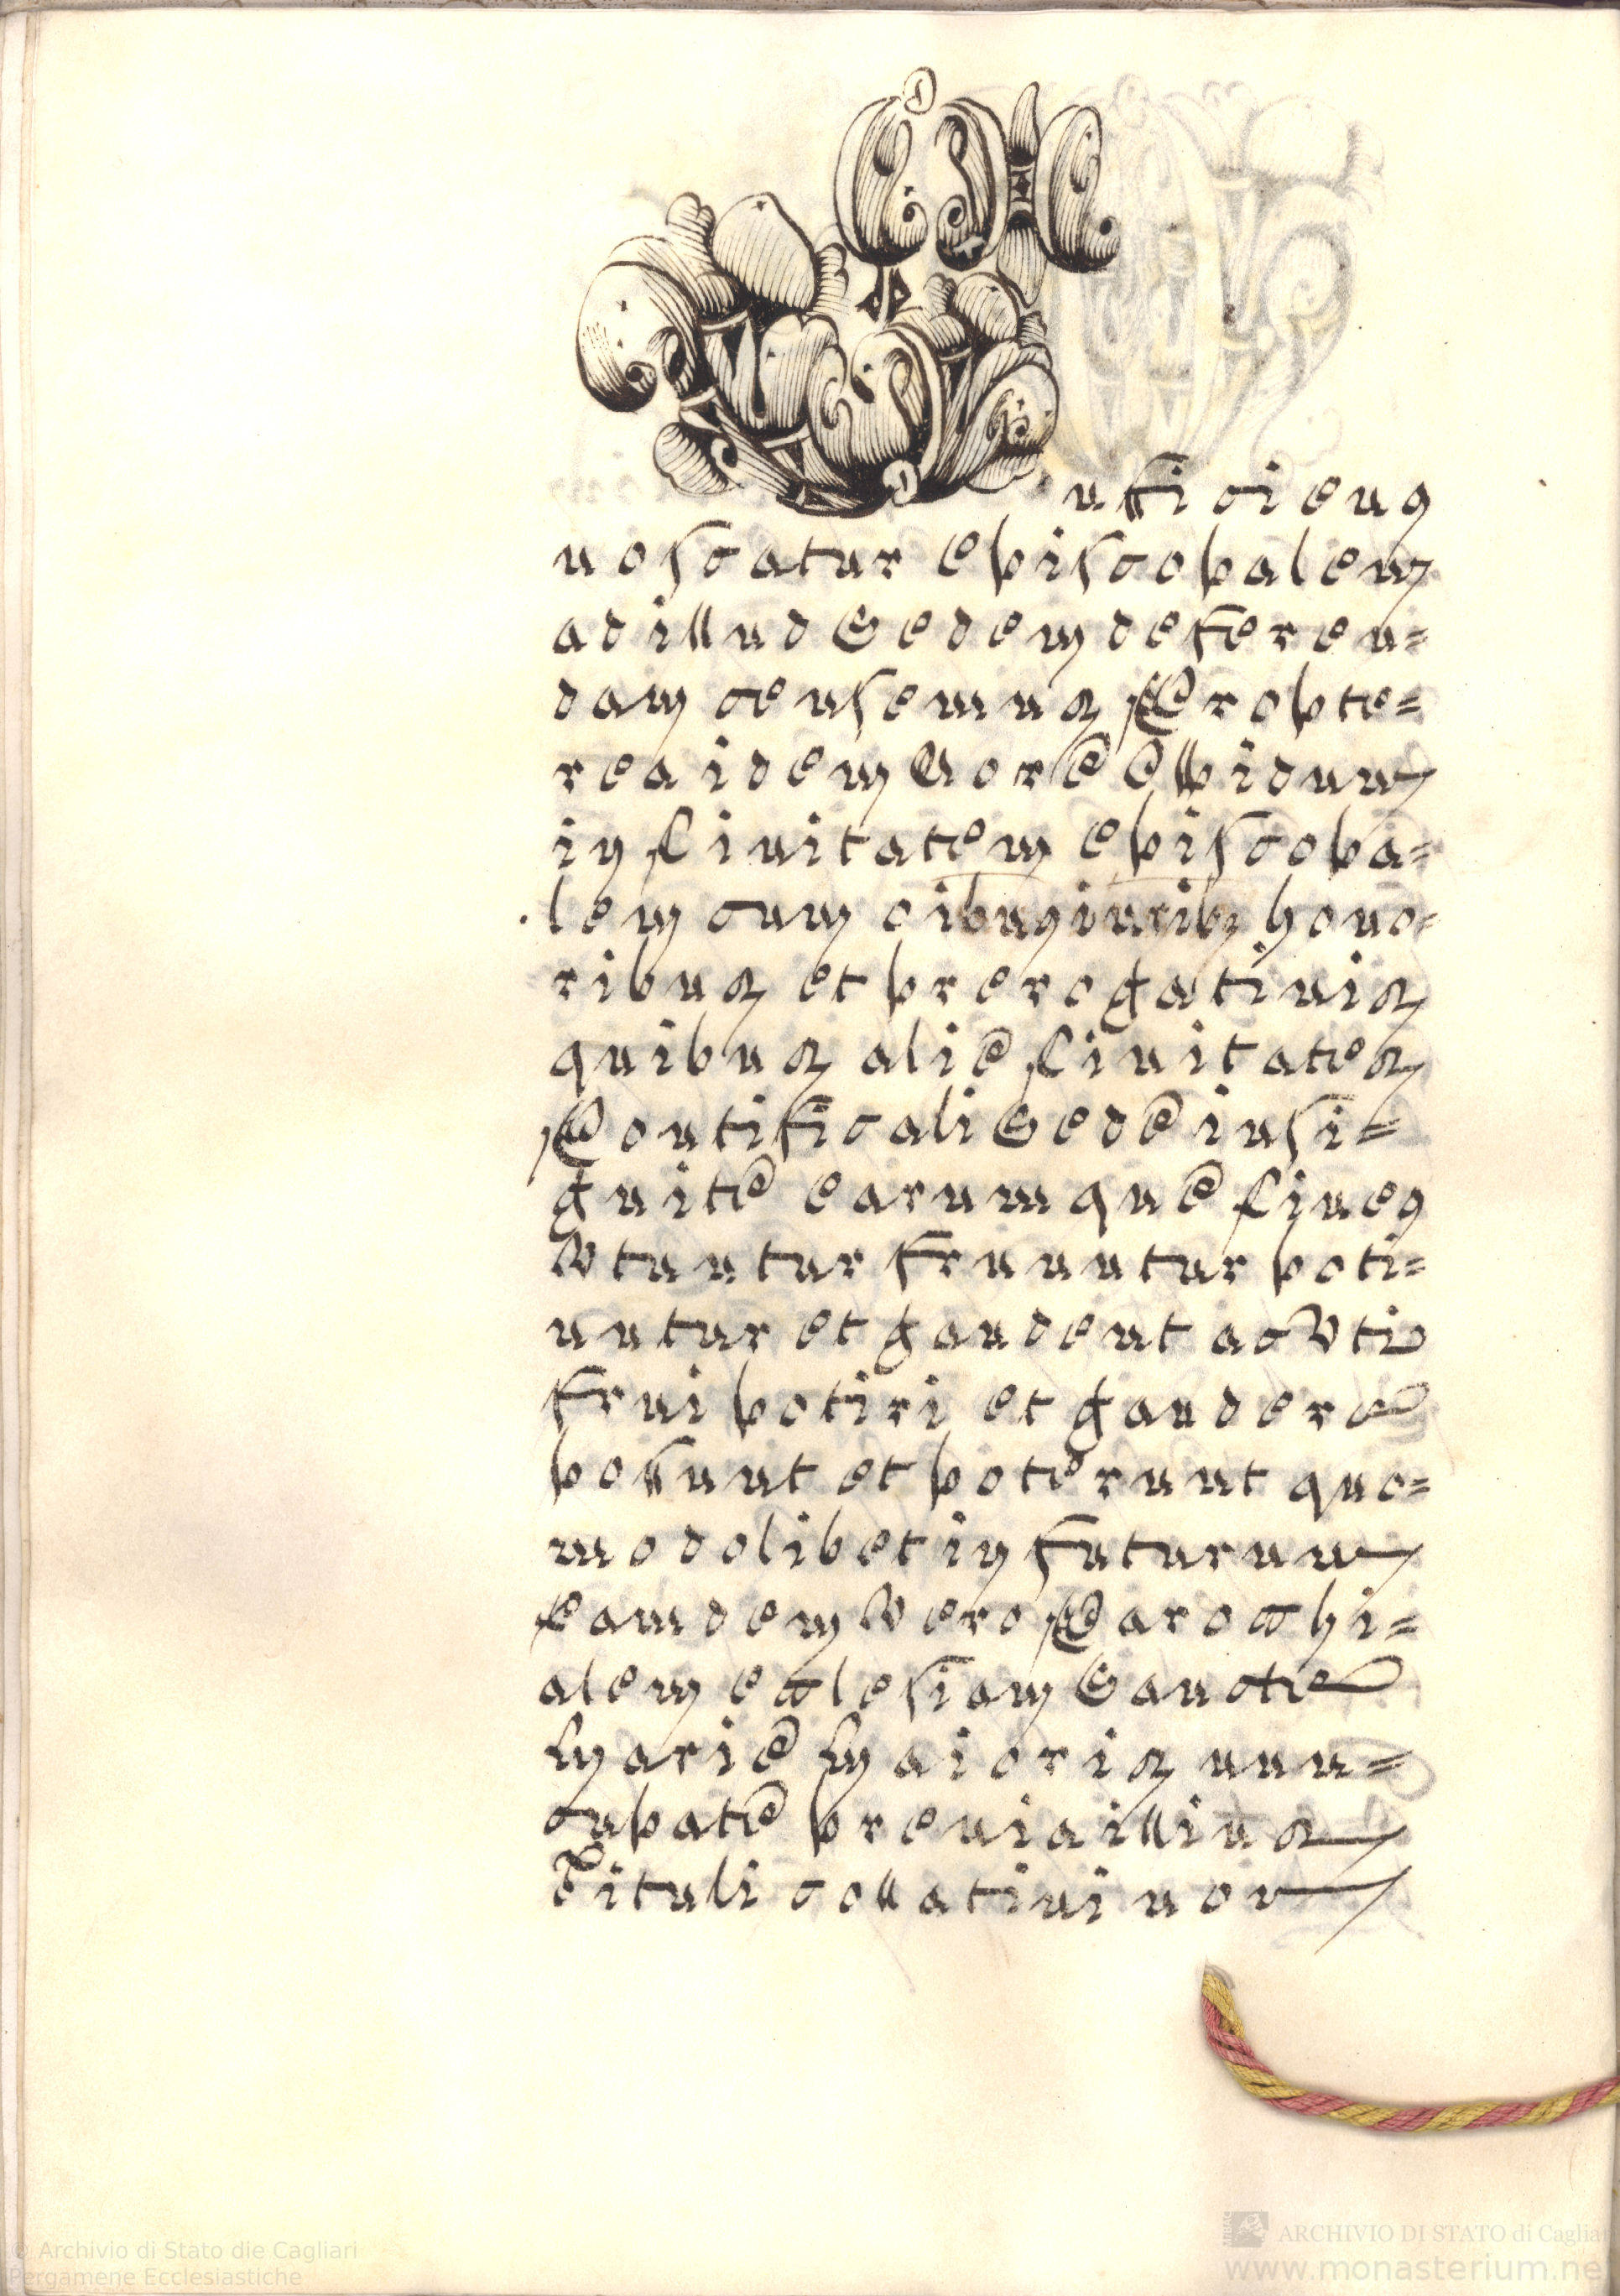 Sufficiens
noscatur episcopalem
ad illud Sedem deferen=
dam censemus Propte=
rea idem Nore Oppidum
in Civitatem episcopa=
lem cum oibus iuribz hono=
ribus et prerogativis
quibus alie Civitates
Pontificali Sede insi=
gnite earumque Cives
Vtuntur fruuntur poti=
untur et gaudent ac Vti
frui potiri et gaudere
possunt et poterunt quo=
modolibet in futurum
Eamdem Vero Parochi=
alem ecclesiam Sancte
Marie Maioris nun=
cupate previa illius
Tituli collativi non
© Archivio di Stato die Cagliari
Pergamene Ecclesiastiche
ARCHIVIO DI STATO di Cagliar
www.monasterium.ne